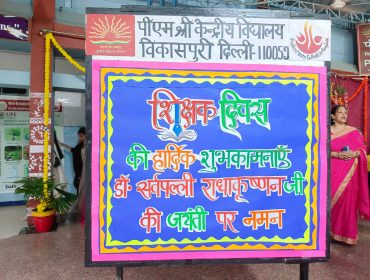 पीएम श्री केन्द्रीय विद्यालय
विकासपुरी दिल्ली-110059
शिक्षक दिवस
की हार्दिक शुभकामनाएँ
डॉ॰ सर्वपल्ली राधाकृष्णन जी
की जयंती पर नमन